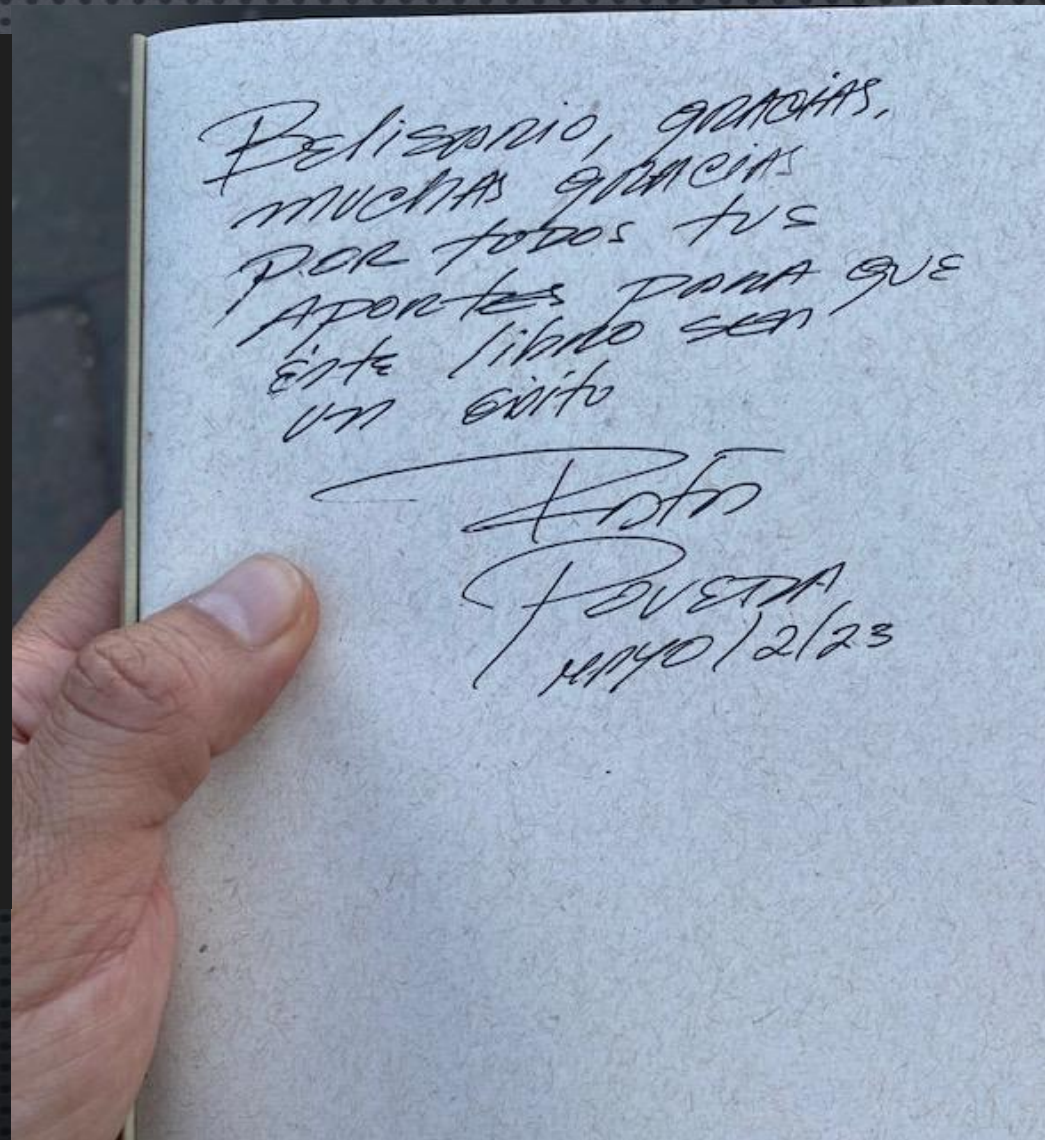 Belisario, gracias,
muchas gracias
por todos tus
aportes para que
éste libro sea
un éxito
Rafa
Poveda
mayo/2/23